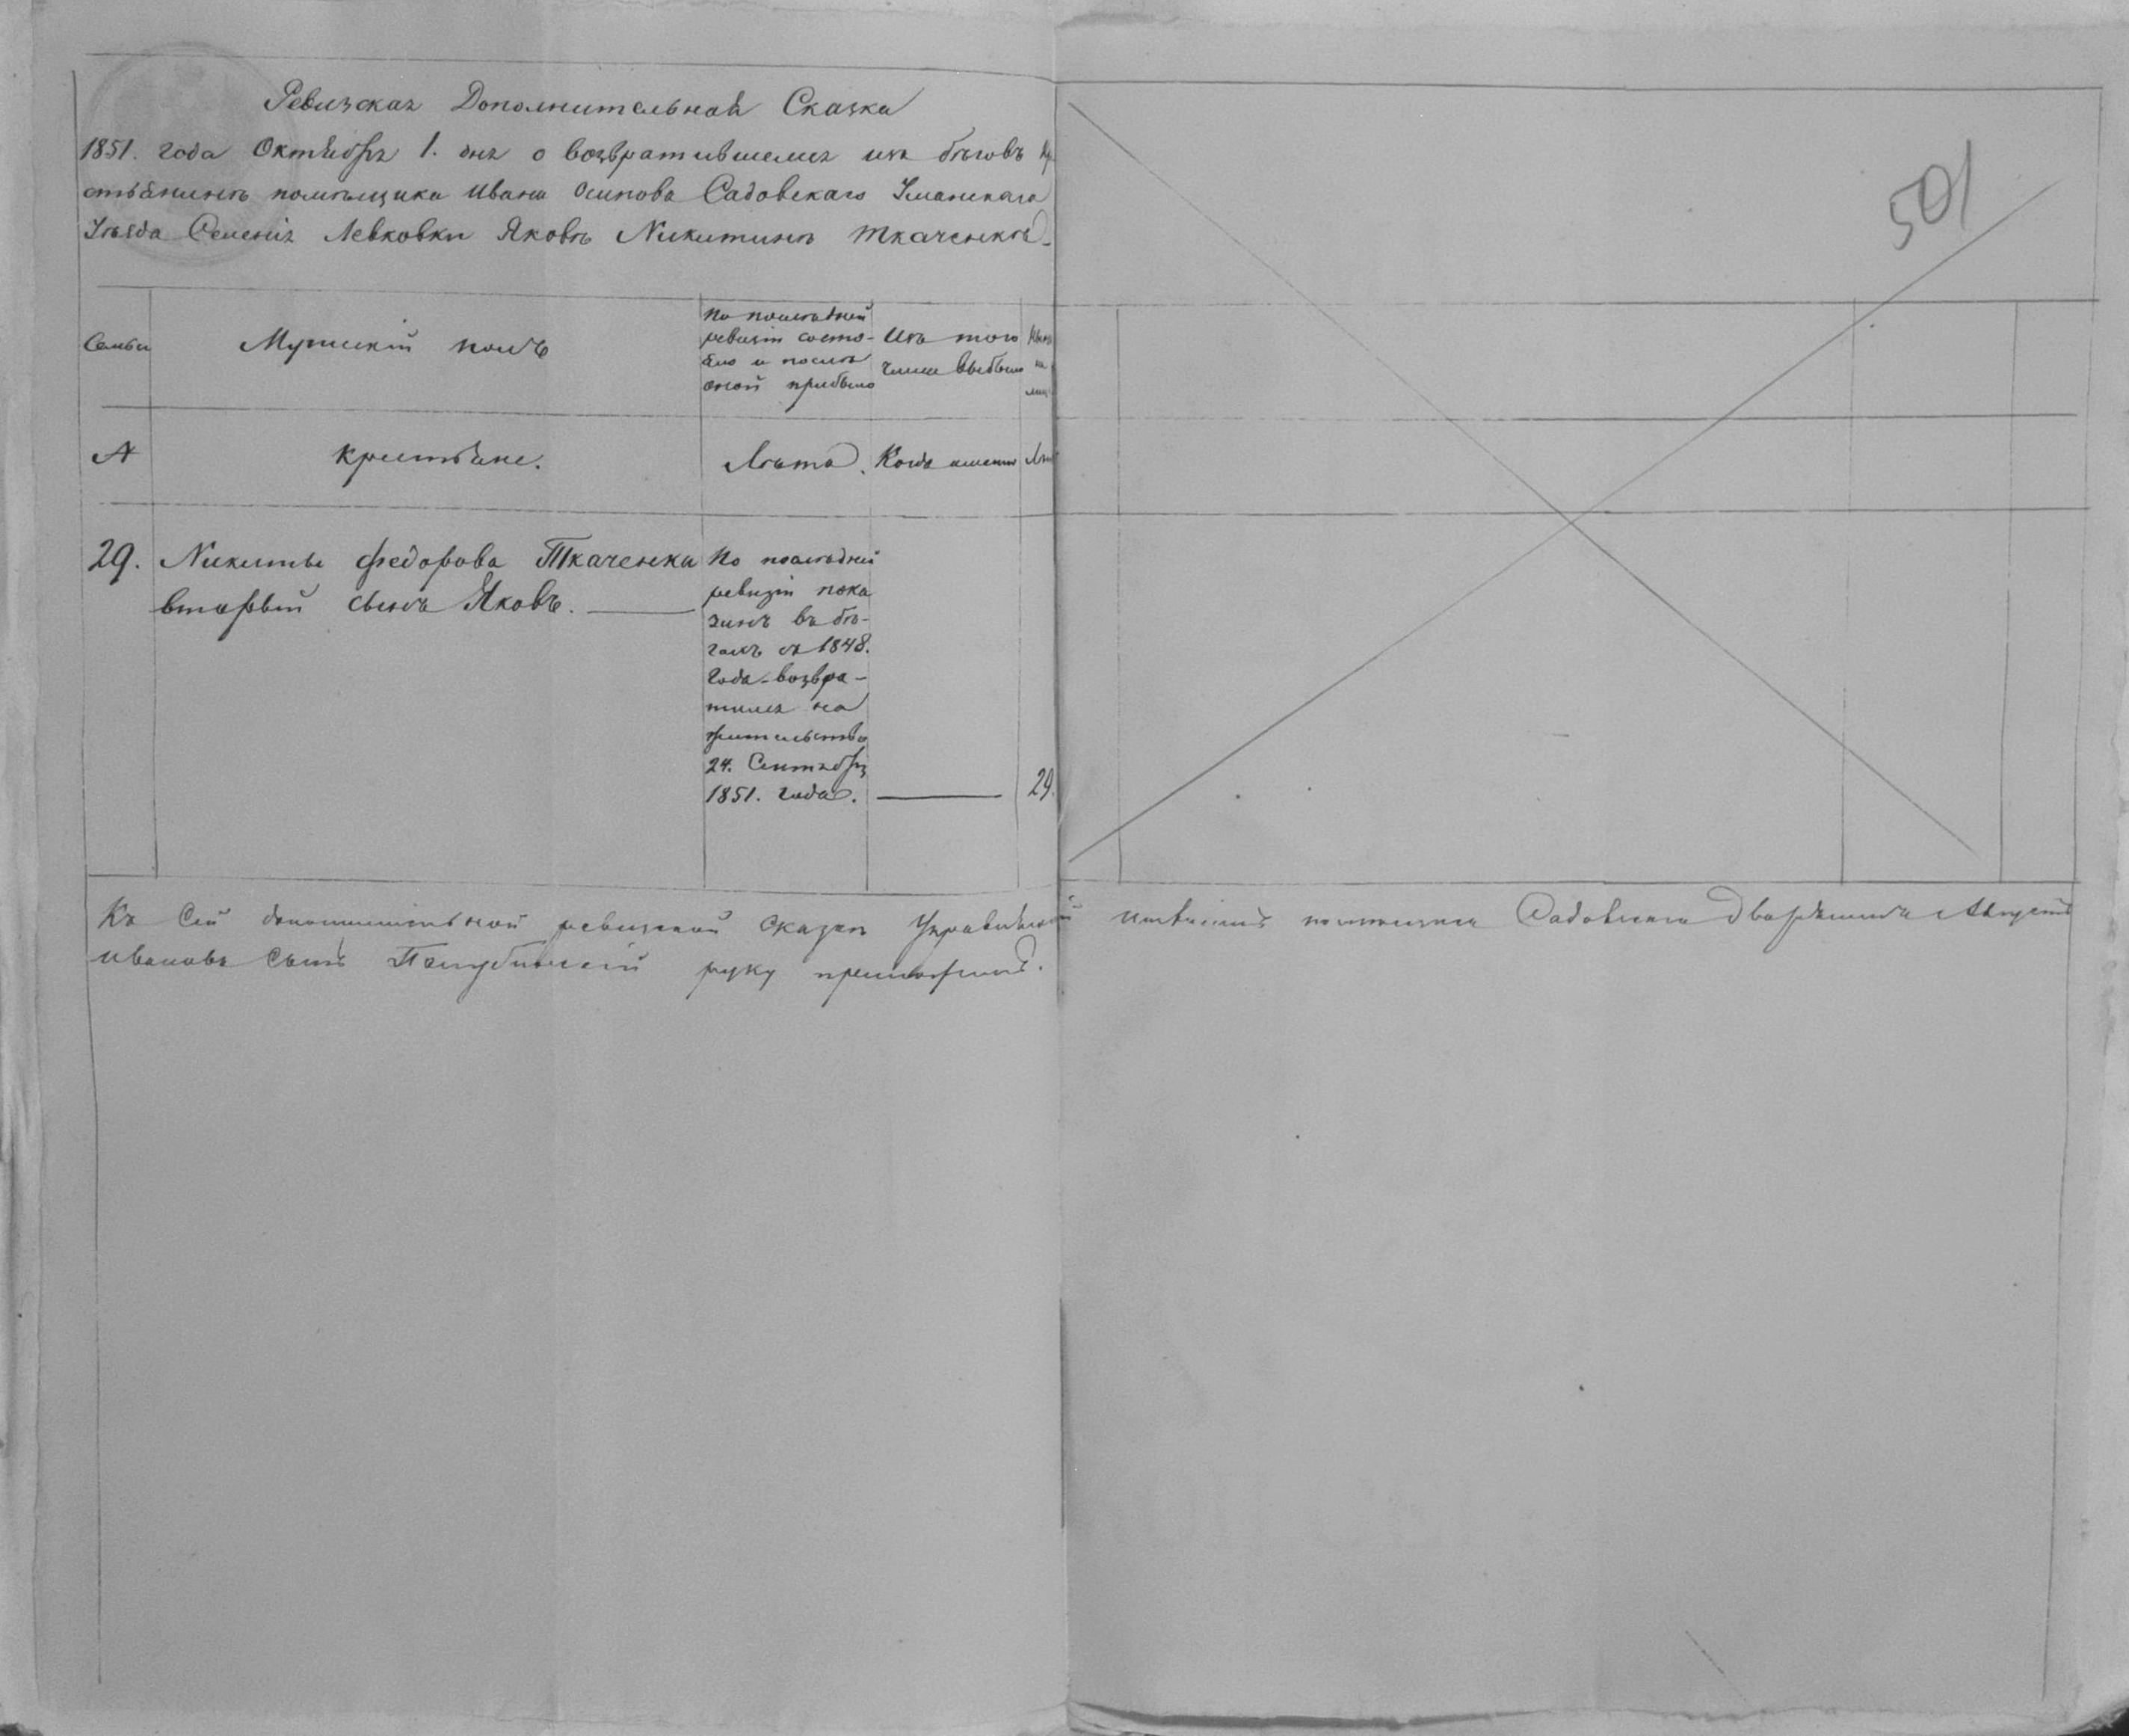 Ревизская Дополнительная Сказка
1851. года Октября 1. дня о возвратившемся изъ бѣговъ кр
стьянинѣ помѣщика Ивана Осипова Садовскаго Уманскаго
Уѣзда Селенія Левковки Яковѣ Никитинѣ Ткаченкѣ
501
Семьи
Мужескій полъ
По послѣдней
ревизіи состо-
яло и послѣ
оной прибыло
Изъ того
числа выбыло
на
лиц
Крестьяне.
Лѣта.
Когда именно
Лѣт
29.
Никиты Федорова Ткаченка
вторый сынъ Яковъ.
По послѣдней
ревизіи пока
занъ въ бѣ-
гахъ съ 1848.
года - возвра-
тился на
жительство
24. Сентября
1851. года.
29.
Къ Сей дополнительной ревизской Сказкѣ Управляющій имѣніемъ помѣщика Садовскаго Дворянинъ Августъ
Ивановъ Сынъ руку приложилъ.